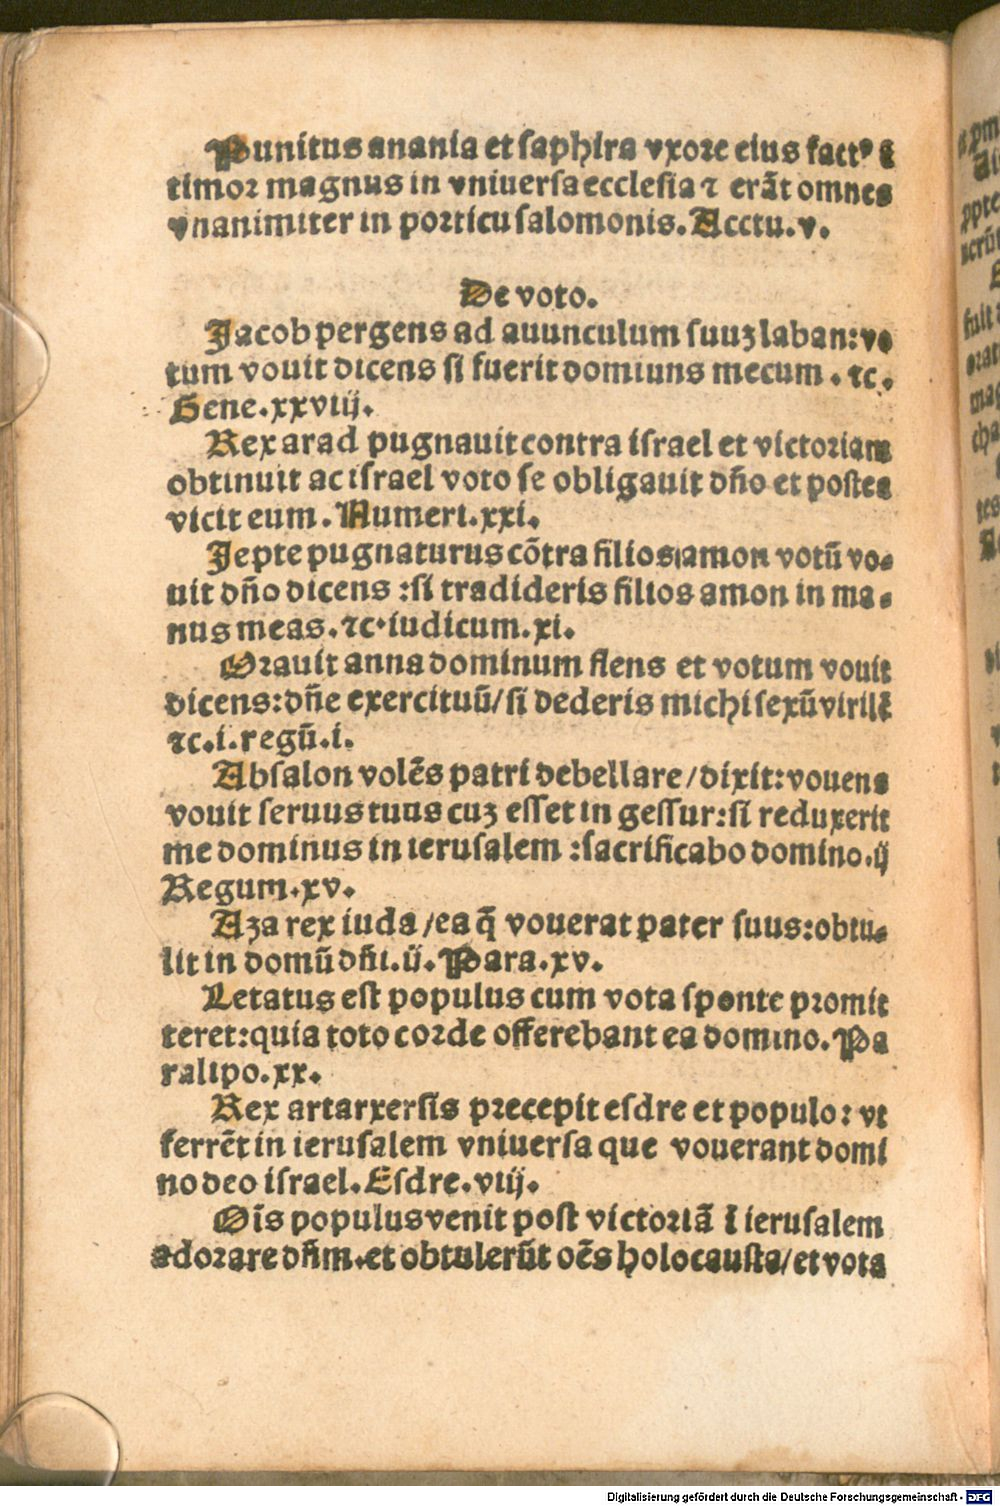 Punitus anania et saphira vxore eius fact⁹ ē
timor magnus in vniuersa ecclesia ⁊ erāt omnes
vnanimiter in porticu salomonis. Acctu. v.
De voto.
Jacob pergens ad auunculum suuʒ laban: vo
tum vouit dicens si fuerit domiuns mecum. ⁊c.
Gene. xxviij.
Rex arad pugnauit contra israel et victoriam
obtinuit ac israel voto se obligauit dño et postea
vicit eum. Numeri. xxi.
Jepte pugnaturus cōtra filios amon votū vo-
uit dño dicens : si tradideris filios amon in ma-
nus meas. ⁊c. iudicum. xi.
Orauit anna dominum flens et votum vouit
dicens: dñe exercituū/ si dederis michi sexū virilē
⁊c. i. regū. i.
Absalon volēs patri debellare / dixit: vouens
vouit seruus tuus cuʒ esset in gessur: si reduxerit
me dominus in ierusalem : sacrificabo domino. ij
Regum. xv.
Aza rex iuda / ea q̄ vouerat pater suus: obtu-
lit in domū dñi. ij. Para. xv.
Letatus est populus cum vota sponte promit
teret: quia toto corde offerebant ea domino. Pa
ralipo. xx.
Rex artarxersis precepit esdre et populo: vt
ferrēt in ierusalem vniuersa que vouerant domi
no deo israel. Esdre. viij.
Oīs populus venit post victoriā ī ierusalem
adorare dñm. et obtulerūt oēs holocausta/ et vota
Digitalisierung gefördert durch die Deutsche Forschungsgemeinschaft - DFG